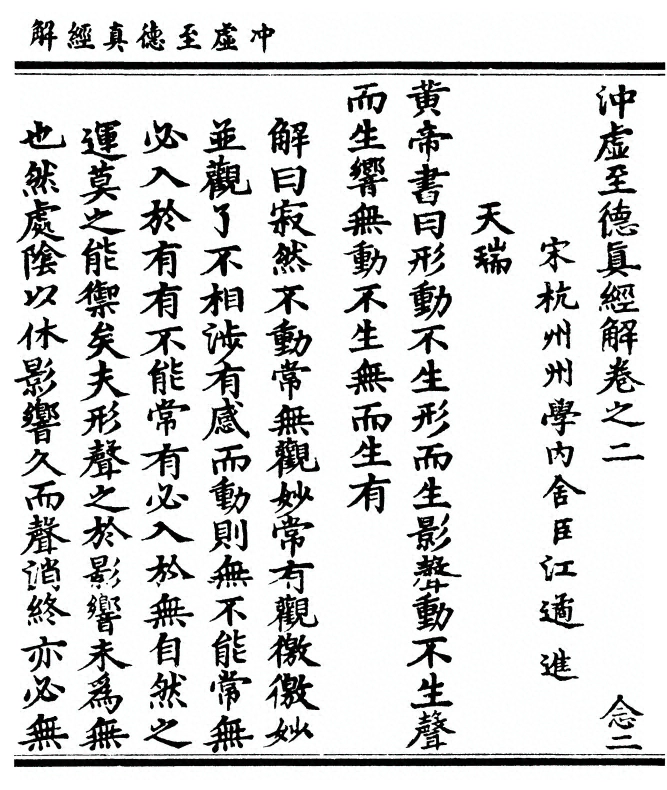 冲虛至德真經解
沖虛至德眞經解卷之二 念二
宋杭州州學內舍臣江遹進
天瑞
黃帝書曰形動不生形而生影聲動不生聲
而生響無動不生無而生有
解曰寂然不動常無觀妙常有觀徼徼妙
並觀了不相涉有感而動則無不能常無
必入於有有不能常有必入於無自然之
運莫之能禦矣夫形聲之於影響未爲無
也然處陰以休影響久而聲消終亦必無